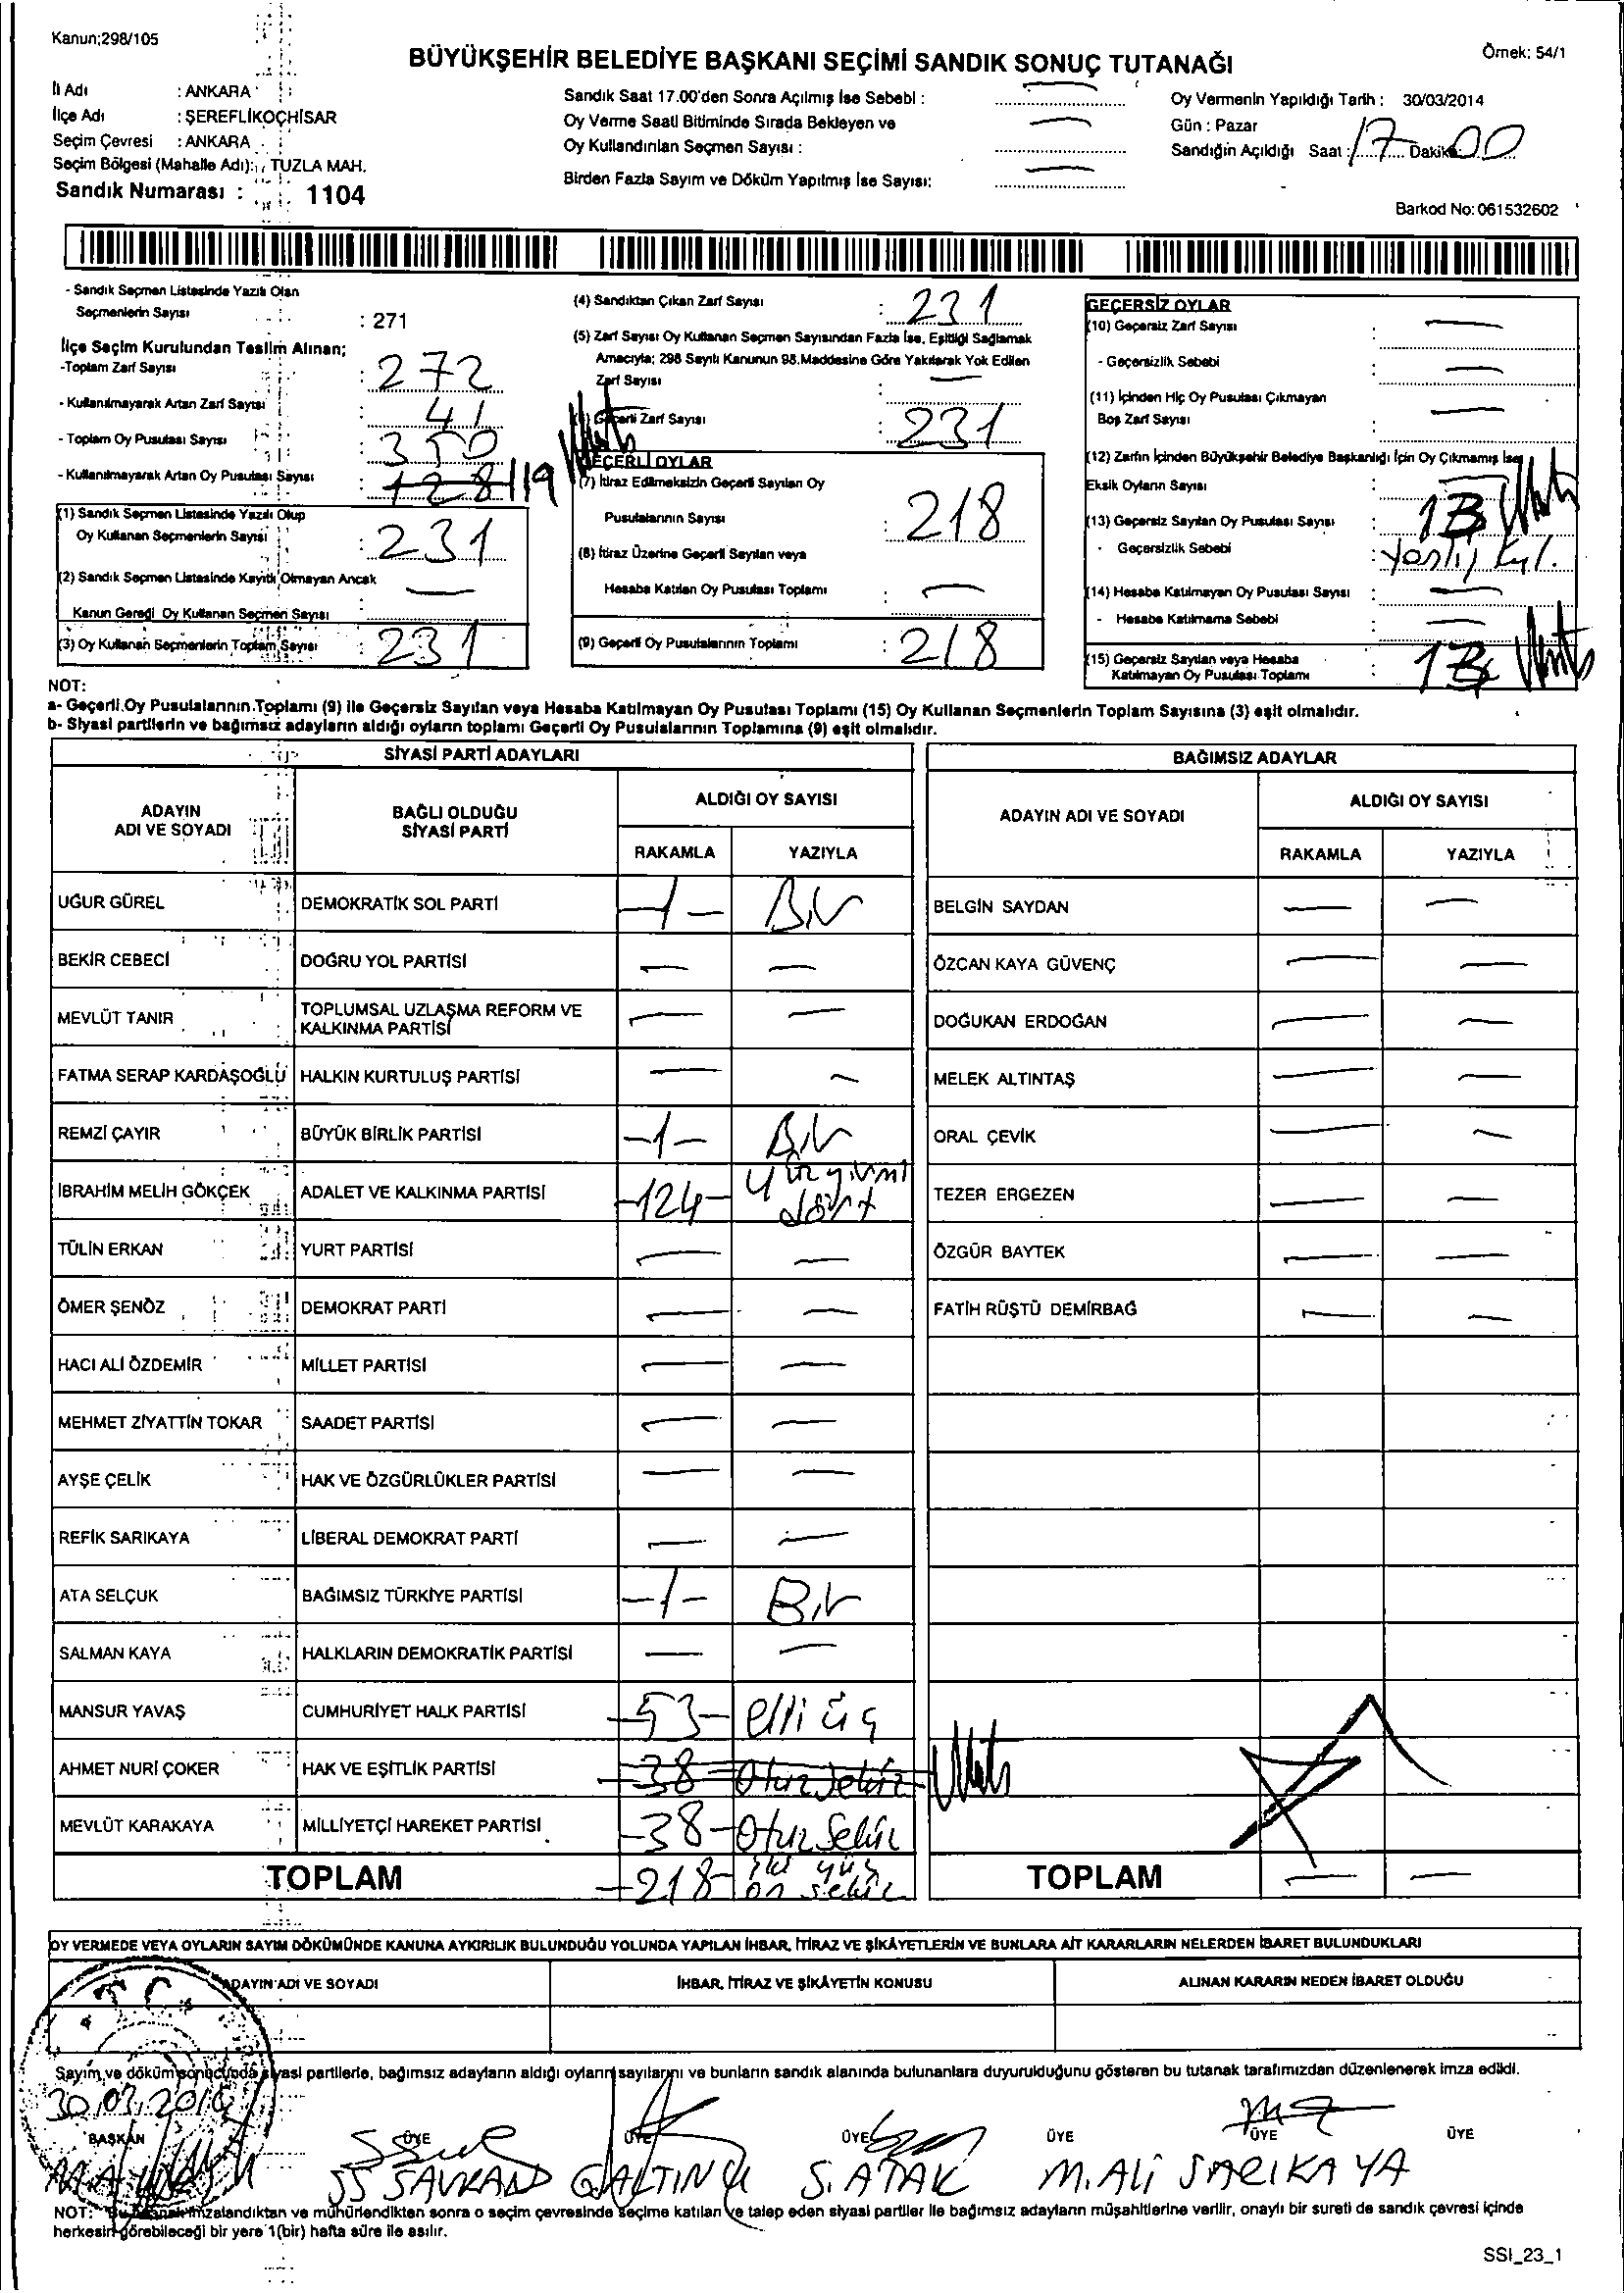 Kanun;298/105
Örnek: 54/1
BÜYÜKŞEHİR BELEDİYE BAŞKANI SEÇİMİ SANDIK SONUÇ TUTANAĞI
İl Adı : ANKARA
İlçe Adı : ŞEREFLİKOÇHİSAR
Seçim Çevresi : ANKARA
Seçim Bölgesi (Mahalle Adı): TUZLA MAH.
Sandık Numarası : 1104
Sandık Saat 17.00'den Sonra Açılmış İse Sebebi : —
Oy Verme Saati Bitiminde Sırada Bekleyen ve
Oy Kullandırılan Seçmen Sayısı : —
Birden Fazla Sayım ve Döküm Yapılmış İse Sayısı: —
Oy Vermenin Yapıldığı Tarih : 30/03/2014
Gün : Pazar
Sandığın Açıldığı Saat : 17 Dakika 00
Barkod No: 061532602
- Sandık Seçmen Listesinde Yazılı Olan
Seçmenlerin Sayısı : 271
İlçe Seçim Kurulundan Teslim Alınan;
-Toplam Zarf Sayısı : 272
- Kullanılmayarak Artan Zarf Sayısı : 41
- Toplam Oy Pusulası Sayısı : 350
- Kullanılmayarak Artan Oy Pusulası Sayısı : 128 119
(1) Sandık Seçmen Listesinde Yazılı Olup
Oy Kullanan Seçmenlerin Sayısı : 231
(2) Sandık Seçmen Listesinde Kayıtlı Olmayan Ancak
Kanun Gereği Oy Kullanan Seçmen Sayısı : —
(3) Oy Kullanan Seçmenlerin Toplam Sayısı : 231
(4) Sandıktan Çıkan Zarf Sayısı : 231
(5) Zarf Sayısı Oy Kullanan Seçmen Sayısından Fazla İse, Eşitliği Sağlamak
Amacıyla; 298 Sayılı Kanunun 98.Maddesine Göre Yakılarak Yok Edilen
Zarf Sayısı : —
(6) Geçerli Zarf Sayısı : 231
GEÇERLİ OYLAR
(7) İtiraz Edilmeksizin Geçerli Sayılan Oy
Pusulalarının Sayısı : 218
(8) İtiraz Üzerine Geçerli Sayılan veya
Hesaba Katılan Oy Pusulası Toplamı : —
(9) Geçerli Oy Pusulalarının Toplamı : 218
GEÇERSİZ OYLAR
(10) Geçersiz Zarf Sayısı : —
- Geçersizlik Sebebi : —
(11) İçinden Hiç Oy Pusulası Çıkmayan
Boş Zarf Sayısı : —
(12) Zarfın İçinden Büyükşehir Belediye Başkanlığı İçin Oy Çıkmamış İse
Eksik Oyların Sayısı : —
(13) Geçersiz Sayılan Oy Pusulası Sayısı : 13
- Geçersizlik Sebebi :
(14) Hesaba Katılmayan Oy Pusulası Sayısı : —
- Hesaba Katılmama Sebebi : —
(15) Geçersiz Sayılan veya Hesaba
Katılmayan Oy Pusulası Toplamı : 13
NOT:
a- Geçerli Oy Pusulalarının Toplamı (9) ile Geçersiz Sayılan veya Hesaba Katılmayan Oy Pusulası Toplamı (15) Oy Kullanan Seçmenlerin Toplam Sayısına (3) eşit olmalıdır.
b- Siyasi partilerin ve bağımsız adayların aldığı oyların toplamı Geçerli Oy Pusulalarının Toplamına (9) eşit olmalıdır.
SİYASİ PARTİ ADAYLARI
ADAYIN ADI VE SOYADI BAĞLI OLDUĞU SİYASİ PARTİ ALDIĞI OY SAYISI
RAKAMLA YAZIYLA
UĞUR GÜREL DEMOKRATİK SOL PARTİ -1- Bir
BEKİR CEBECİ DOĞRU YOL PARTİSİ — —
MEVLÜT TANIR TOPLUMSAL UZLAŞMA REFORM VE KALKINMA PARTİSİ — —
FATMA SERAP KARDAŞOĞLU HALKIN KURTULUŞ PARTİSİ — —
REMZİ ÇAYIR BÜYÜK BİRLİK PARTİSİ -1- Bir
İBRAHİM MELİH GÖKÇEK ADALET VE KALKINMA PARTİSİ -124- yüzyirmi dört
TÜLİN ERKAN YURT PARTİSİ — —
ÖMER ŞENÖZ DEMOKRAT PARTİ — —
HACI ALİ ÖZDEMİR MİLLET PARTİSİ — —
MEHMET ZİYATTİN TOKAR SAADET PARTİSİ — —
AYŞE ÇELİK HAK VE ÖZGÜRLÜKLER PARTİSİ — —
REFİK SARIKAYA LİBERAL DEMOKRAT PARTİ — —
ATA SELÇUK BAĞIMSIZ TÜRKİYE PARTİSİ -1- Bir
SALMAN KAYA HALKLARIN DEMOKRATİK PARTİSİ — —
MANSUR YAVAŞ CUMHURİYET HALK PARTİSİ -53- elli üç
AHMET NURİ ÇOKER HAK VE EŞİTLİK PARTİSİ -38- Otuz sekiz
MEVLÜT KARAKAYA MİLLİYETÇİ HAREKET PARTİSİ -38- Otuz Sekiz
TOPLAM -218- iki yüz on sekiz
BAĞIMSIZ ADAYLAR
ADAYIN ADI VE SOYADI ALDIĞI OY SAYISI
RAKAMLA YAZIYLA
BELGİN SAYDAN — —
ÖZCAN KAYA GÜVENÇ — —
DOĞUKAN ERDOĞAN — —
MELEK ALTINTAŞ — —
ORAL ÇEVİK — —
TEZER ERGEZEN — —
ÖZGÜR BAYTEK — —
FATİH RÜŞTÜ DEMİRBAĞ — —
TOPLAM — —
OY VERMEDE VEYA OYLARIN SAYIM DÖKÜMÜNDE KANUNA AYKIRILIK BULUNDUĞU YOLUNDA YAPILAN İHBAR, İTİRAZ VE ŞİKÂYETLERİN VE BUNLARA AİT KARARLARIN NELERDEN İBARET BULUNDUKLARI
ADAYIN ADI VE SOYADI İHBAR, İTİRAZ VE ŞİKÂYETİN KONUSU ALINAN KARARIN NEDEN İBARET OLDUĞU
T.C.
Sayım ve döküm sonucunda siyasi partilerle, bağımsız adayların aldığı oyların sayılarını ve bunların sandık alanında bulunanlara duyurulduğunu gösteren bu tutanak tarafımızdan düzenlenerek imza edildi.
30.03.2014
BAŞKAN ÜYE ÜYE ÜYE ÜYE ÜYE ÜYE
S. ATAK M. ALİ SARIKAYA
NOT: Bu tutanak imzalandıktan ve mühürlendikten sonra o seçim çevresinde seçime katılan ve talep eden siyasi partiler ile bağımsız adayların müşahitlerine verilir, onaylı bir sureti de sandık çevresi içinde
herkesin görebileceği bir yere 1(bir) hafta süre ile asılır.
SSI_23_1